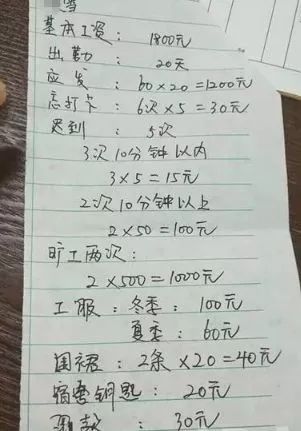 雪
基本工资: 1800元
出勤: 20天
应发: 60×20=1200元
忘打卡: 6次×5=30元
迟到: 5次
3次10分钟以内
3×5=15元
2次10分钟以上
2×50=100元
旷工两次:
2×500=1000元
工服: 冬季: 100元
夏季: 60元
围裙: 2条×20=40元
宿舍钥匙: 20元
罚款: 30元